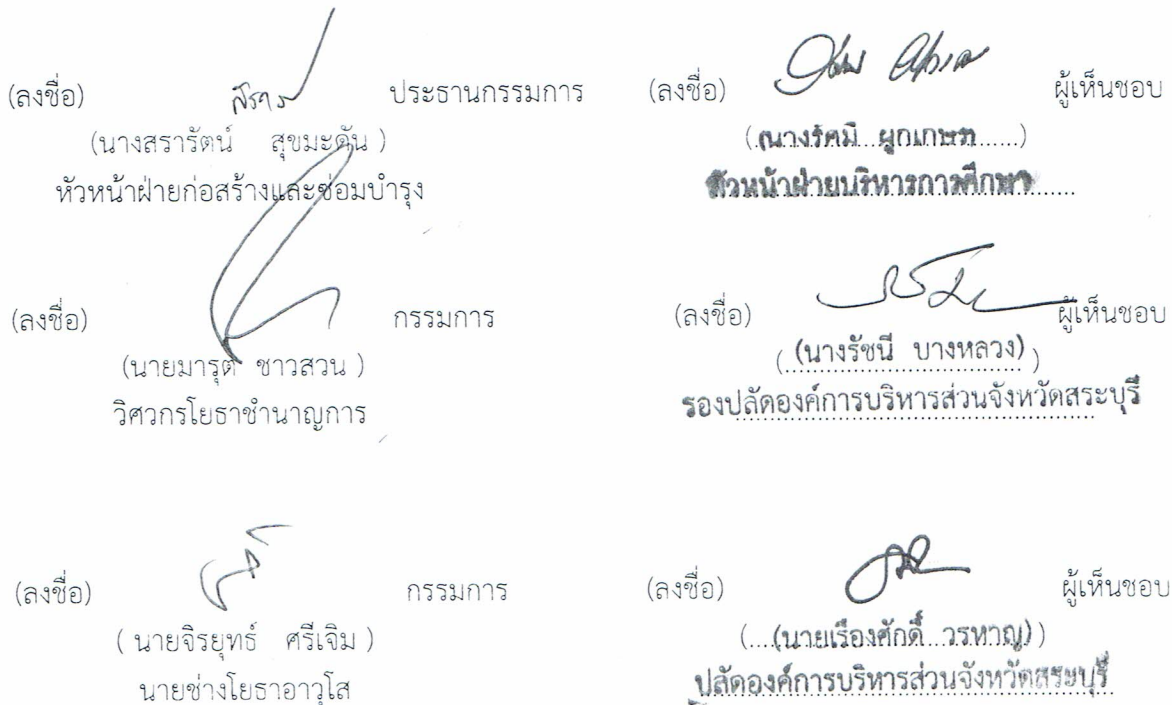 (ลงชื่อ) ประธานกรรมการ
(นางสรารัตน์ สุขมะดัน )
หัวหน้าฝ่ายก่อสร้างและซ่อมบำรุง
(ลงชื่อ) กรรมการ
(นายมารุต ชาวสวน )
วิศวกรโยธาชำนาญการ
(ลงชื่อ) กรรมการ
( นายจิรยุทธ์ ศรีเจิม )
นายช่างโยธาอาวุโส
(ลงชื่อ) ผู้เห็นชอบ
(นางรัศมี ผูกเกษร......)
หัวหน้าฝ่ายบริหารการศึกษา
(ลงชื่อ) ผู้เห็นชอบ
( (นางรัชนี บางหลวง) )
รองปลัดองค์การบริหารส่วนจังหวัดสระบุรี
(ลงชื่อ) ผู้เห็นชอบ
(....(นายเรืองศักดิ์ วรหาญ))
ปลัดองค์การบริหารส่วนจังหวัดสระบุรี